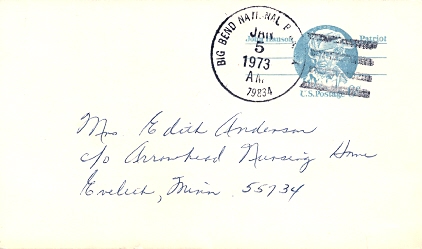 BIG BEND NATIONAL P
JAN
5
1973
AM
79834
John Hanson Patriot
U.S. Postage
Mrs Edith Anderson
c/o Arrowhead Nursing Home
Eveleth, Minn 55734